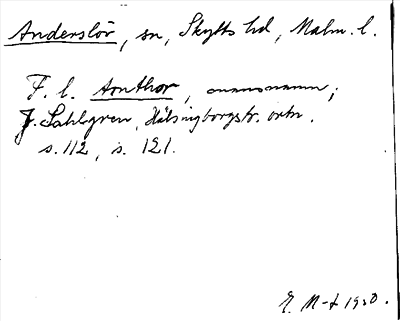 Anderslöv, sn, Skytts hd, Malm. l.
F. l. Arnthor, mansnamn;
J. Sahlgren, Hälsingborgstr. ortn.
s. 112, s. 121.
E. M-t 1930.